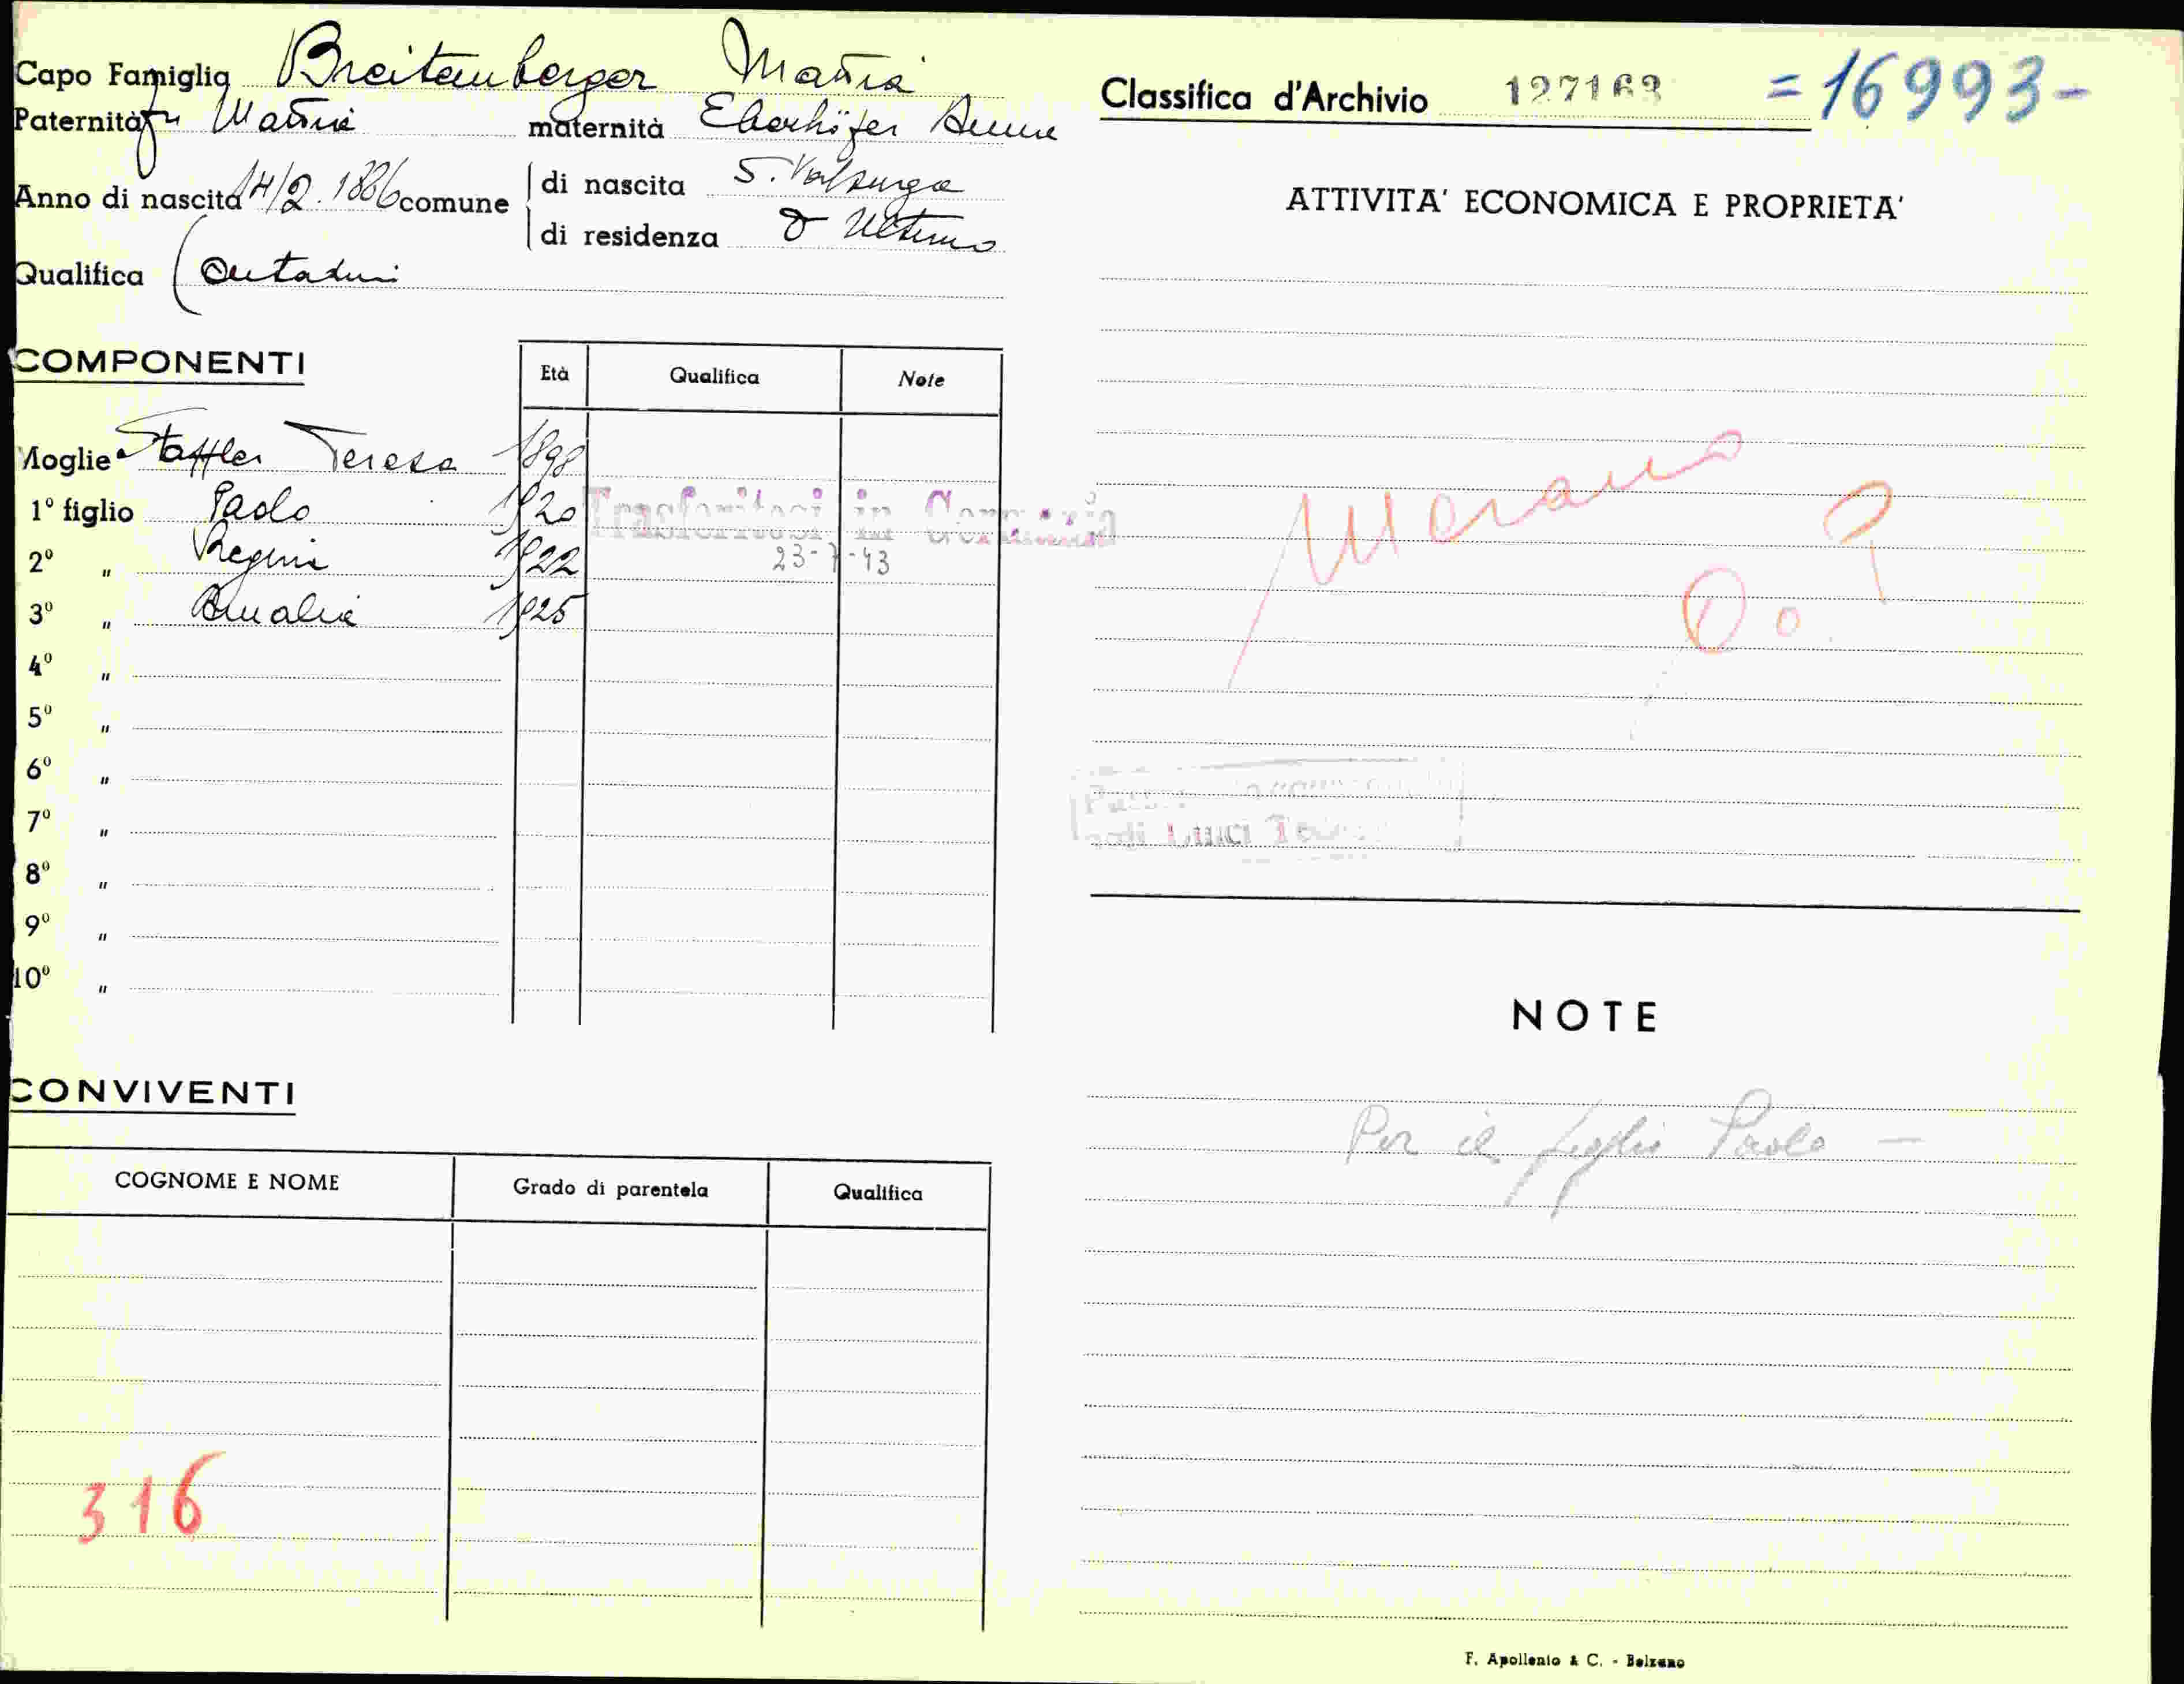 Capo Famiglia Breitenberger Mattia
Paternità fu Mattia maternità Eberhöfer Anna
Anno di nascita 14/2.1886 comune di nascita S. Valburga
di residenza d'Ultimo
Qualifica Contadini
Classifica d'Archivio 127163 =16993-
COMPONENTI
Età Qualifica Note
Moglie Staffler Teresa 1898
1º figlio Paolo 1920
Trasferitosi in Germania
2º " Regina 1922
23-7-43
3º " Amalia 1925
4º "
5º "
6º "
7º "
8º "
9º "
10º "
CONVIVENTI
COGNOME E NOME Grado di parentela Qualifica
316
ATTIVITA' ECONOMICA E PROPRIETA'
Merano
NOTE
Per il figlio Paolo —
F. Apollonio & C. - Bolzano